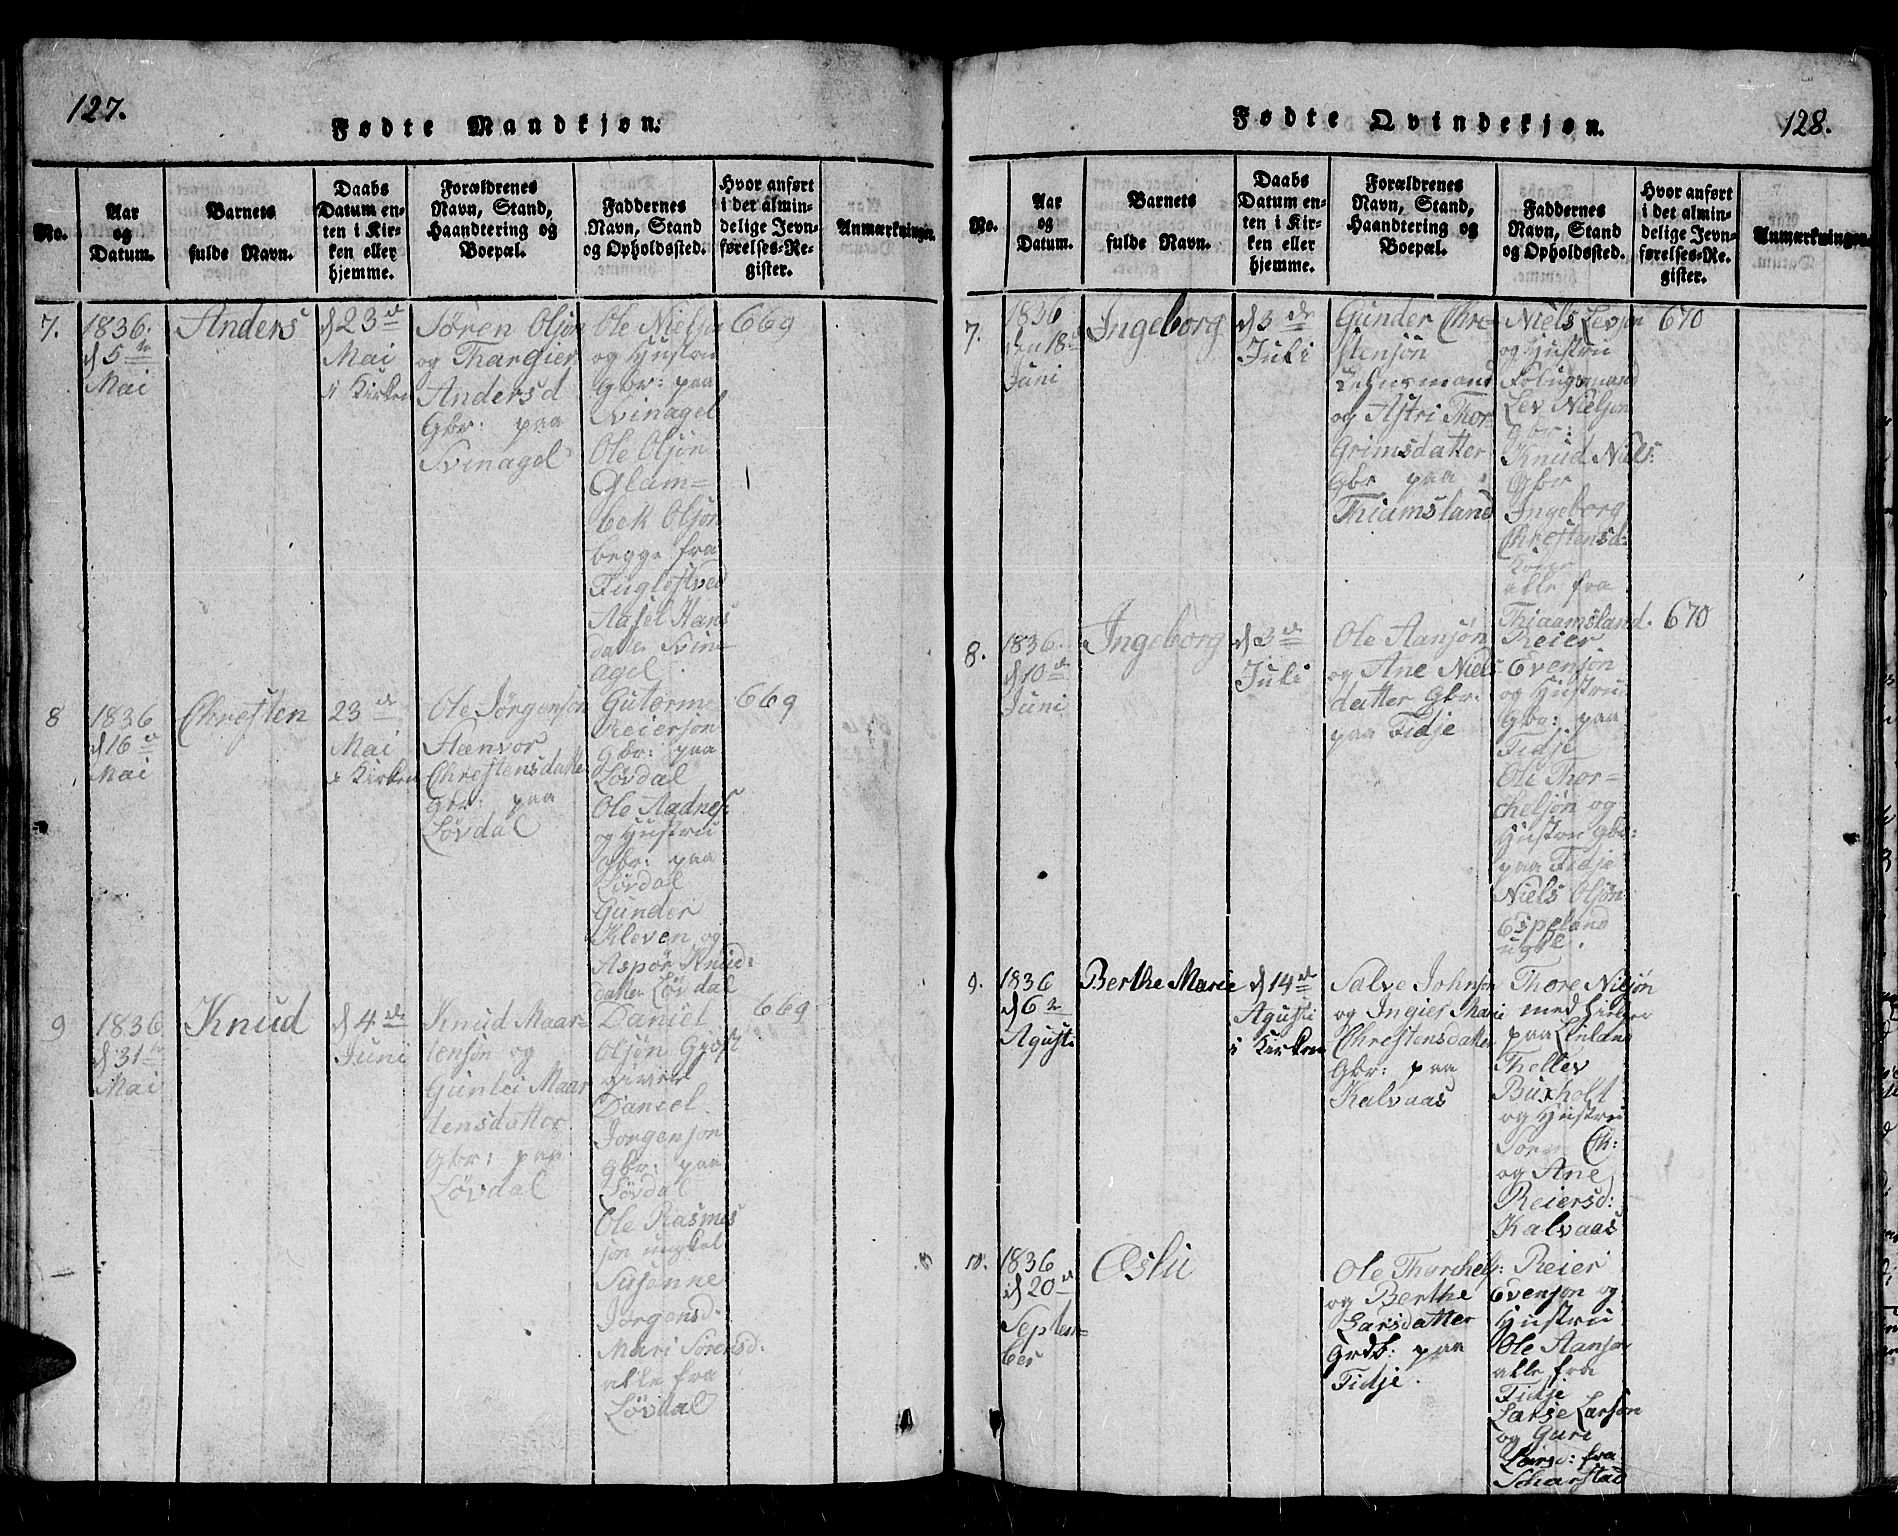 127.
Fødte Mandkjøn.
No.
Aar
og
Datum.
Barnets
fulde Navn.
Daabs
Datum en-
ten i Kir-
ken eller
hjemme.
Forældrenes
Navn, Stand,
Haandtering og
Boepæl.
Faddernes
Navn, Stand
og Opholdssted.
Hvor anført
i det almin-
delige Jevn-
førelses-Re-
gister.
Anmærkninger.
7.
1836.
d 5te
Mai
Anders
d 23de
Mai
i Kirken
Søren Olsøn
og Thargier
Andersd
Gbr: paa
Svinagel
Ole Nielsøn
og Hustru
Gbr: paa
Svinagel
Ole Olsøn
Glam=
bek Olsøn
begge fra
Fuglestved
Aasel Hans
datter Svin=
agel
669
8
1836
d 16de
Mai
Chresten
23de
Mai
i Kirken
Ole Jørgensøn
Hænvor
Chrestensdatter
Gbr: paa
Løvdal
Guterm
Reiersøn
Gbr: paa
Løvdal
Ole Aadnes:
og Hustru
Gbr: paa
Løvdal
Gunder
Kleven og
Aspør Knud:
datter Løvdal
669
9
1836
d 31te
Mai
Knud
d 4de
Juni
Knud Maar-
tensøn og
Guntei Maar
tensdatter
Gbr: paa
Løvdal
Daniel
Olsøn Gjøst
giver
Daniel
Jorgensøn
Gbr: paa
Løvdal
Ole Rasmus
søn ungkel
Susanne
Jørgensd.
Mari Sørensd.
alle fra
Løvdal
669
128.
Fødte Qvindekjøn.
No.
Aar
og
Datum.
Barnets
fulde Navn.
Daabs
Datum en-
ten i Kir-
ken eller
hjemme.
Forældrenes
Navn, Stand,
Haandtering og
Boepæl.
Faddernes
Navn, Stand
og Opholdssted.
Hvor anført
i det almin-
delige Jevn-
førelses-Re-
gister.
Anmærkninger.
7.
1836
den 18de
Juni
Ingeborg
d 3de
Juli
Gunder Chre-
stensøn
Lehnsmand
og Astri Thor-
Grimsdatter
Gbr paa
Thiamsland
Niels Levsøn
og Hustru
Folugmand
Lev Nielsøn
Gbr:
Knud Niels:
Gbr
Ingeborg
Chrestensd:
alle fra
Thiaamsland.
670
8.
1836.
d 10de
Juni
Ingeborg
d 3de
Juli
Ole Aansøn
og Ane Niels
datter Gbr:
paa Tidje
Reier
Evensøn
og Hustru
Gbr: paa
Tidje
Ole Thor=
chelsøn og
Hustru Gbr:
paa Tidje
Niels Olsøn
Espeland
ugkl.
670
9.
1836
d 6te
Agust.
Berthe Marie
d 14de
Agusti
i Kirken
Salve Johnsøn
og Ingier Mari
Chrestensdatter
Gbr: paa
Kalvaas
Thore Nilsøn
med
paa Linland
Thellev
Buxholt
og Hustru
Søren Ch:
og Ane
Reiersd:
Kalvaas
10.
1836
d 20de
Septem=
ber
Oslu
Ole Thorchels:
og Berthe
Larsdatter
Grdb: paa
Tidje.
Reier
Evensøn og
Hustru
Ole Aansøn
alle fra
Tidje
Larse Larsøn
og Guri
Larsd: fra
Scharstad